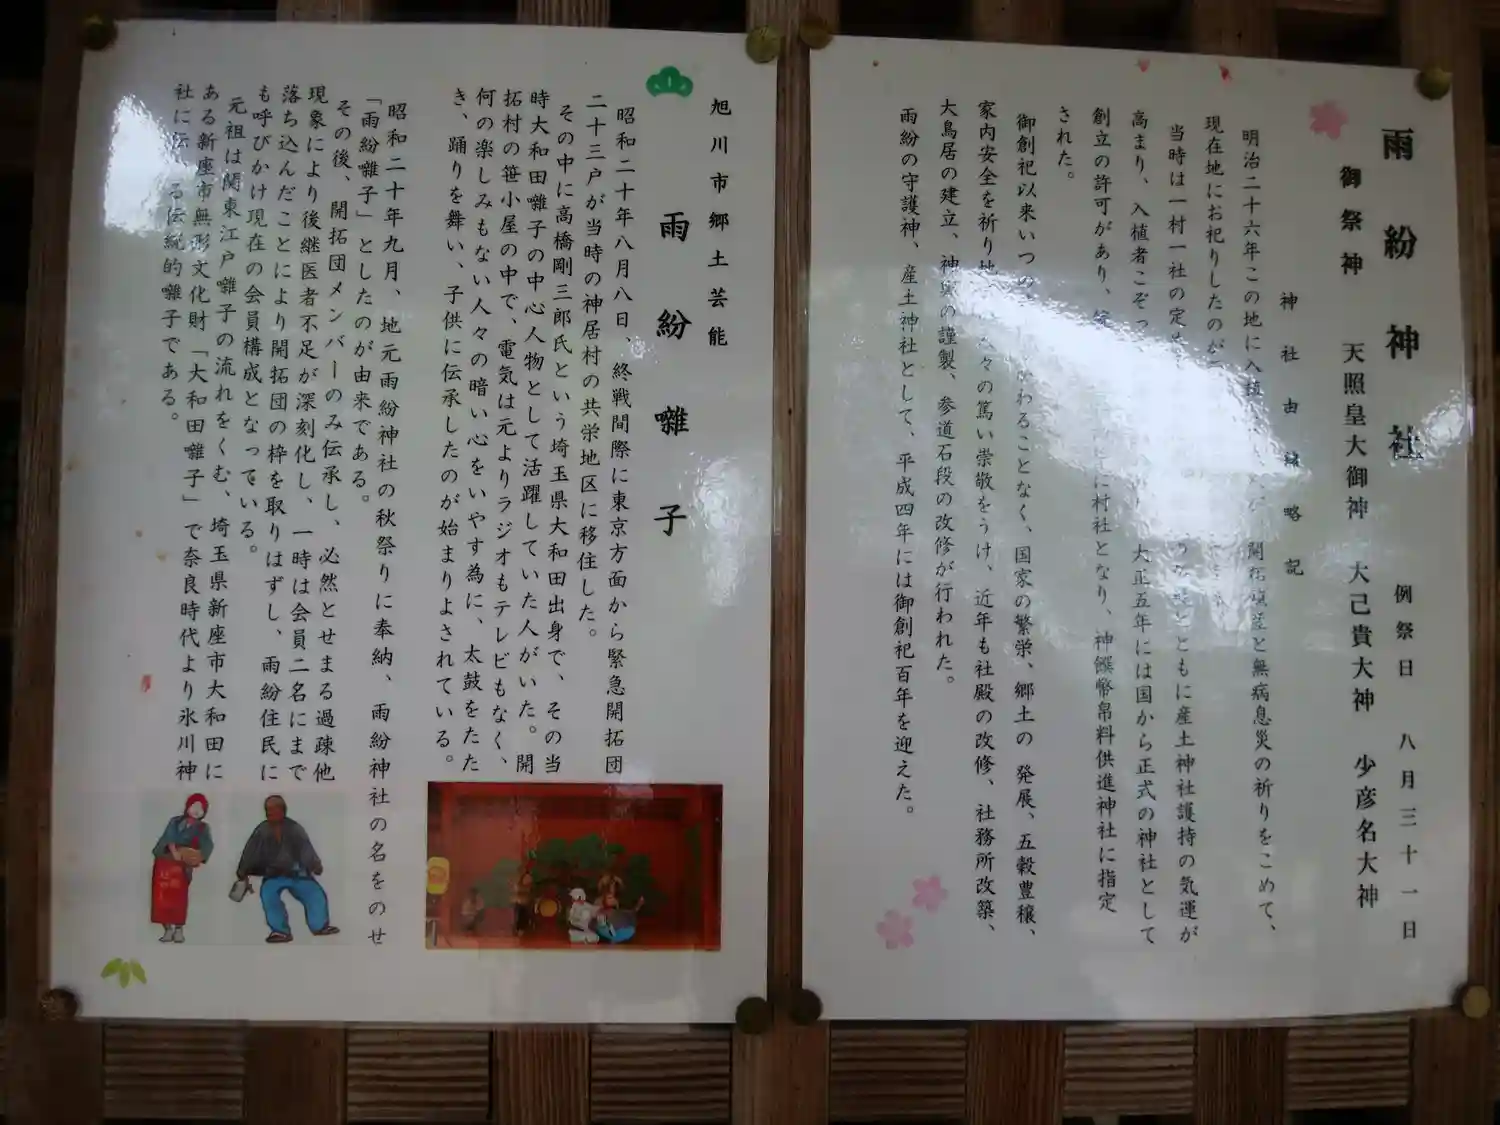 雨紛神社
例祭日 八月三十一日
御祭神 天照皇大御神 大己貴大神 少彦名大神
神社由緒略記
明治二十六年この地に入植 開拓 と無病息災の祈りをこめて、
現在地にお祀りしたのが
当時は一村一社の定め とともに産土神社護持の気運が
高まり、入植者こぞっ 大正五年には国から正式の神社として
創立の許可があり、 に村社となり、神饌幣帛料供進神社に指定
された。
御創祀以来いつの わることなく、国家の繁栄、郷土の発展、五穀豊穣、
家内安全を祈り地 々の篤い崇敬をうけ、近年も社殿の改修、社務所改築、
大鳥居の建立、神輿の謹製、参道石段の改修が行われた。
雨紛の守護神、産土神社として、平成四年には御創祀百年を迎えた。
旭川市郷土芸能
雨紛囃子
昭和二十年八月八日、終戦間際に東京方面から緊急開拓団
二十三戸が当時の神居村の共栄地区に移住した。
その中に高橋剛三郎氏という埼玉県大和田出身で、その当
時大和田囃子の中心人物として活躍していた人がいた。開
拓村の笹小屋の中で、電気は元よりラジオもテレビもなく、
何の楽しみもない人々の暗い心をいやす為に、太鼓をたた
き、踊りを舞い、子供に伝承したのが始まりよされている。
昭和二十年九月、地元雨紛神社の秋祭りに奉納、雨紛神社の名をのせ
「雨紛囃子」としたのが由来である。
その後、開拓団メンバーのみ伝承し、必然とせまる過疎他
現象により後継医者不足が深刻化し、一時は会員二名にまで
落ち込んだことにより開拓団の枠を取りはずし、雨紛住民に
も呼びかけ現在の会員構成となっている。
元祖は関東江戸囃子の流れをくむ、埼玉県新座市大和田に
ある新座市無形文化財「大和田囃子」で奈良時代より氷川神
社に伝 る伝統的囃子である。